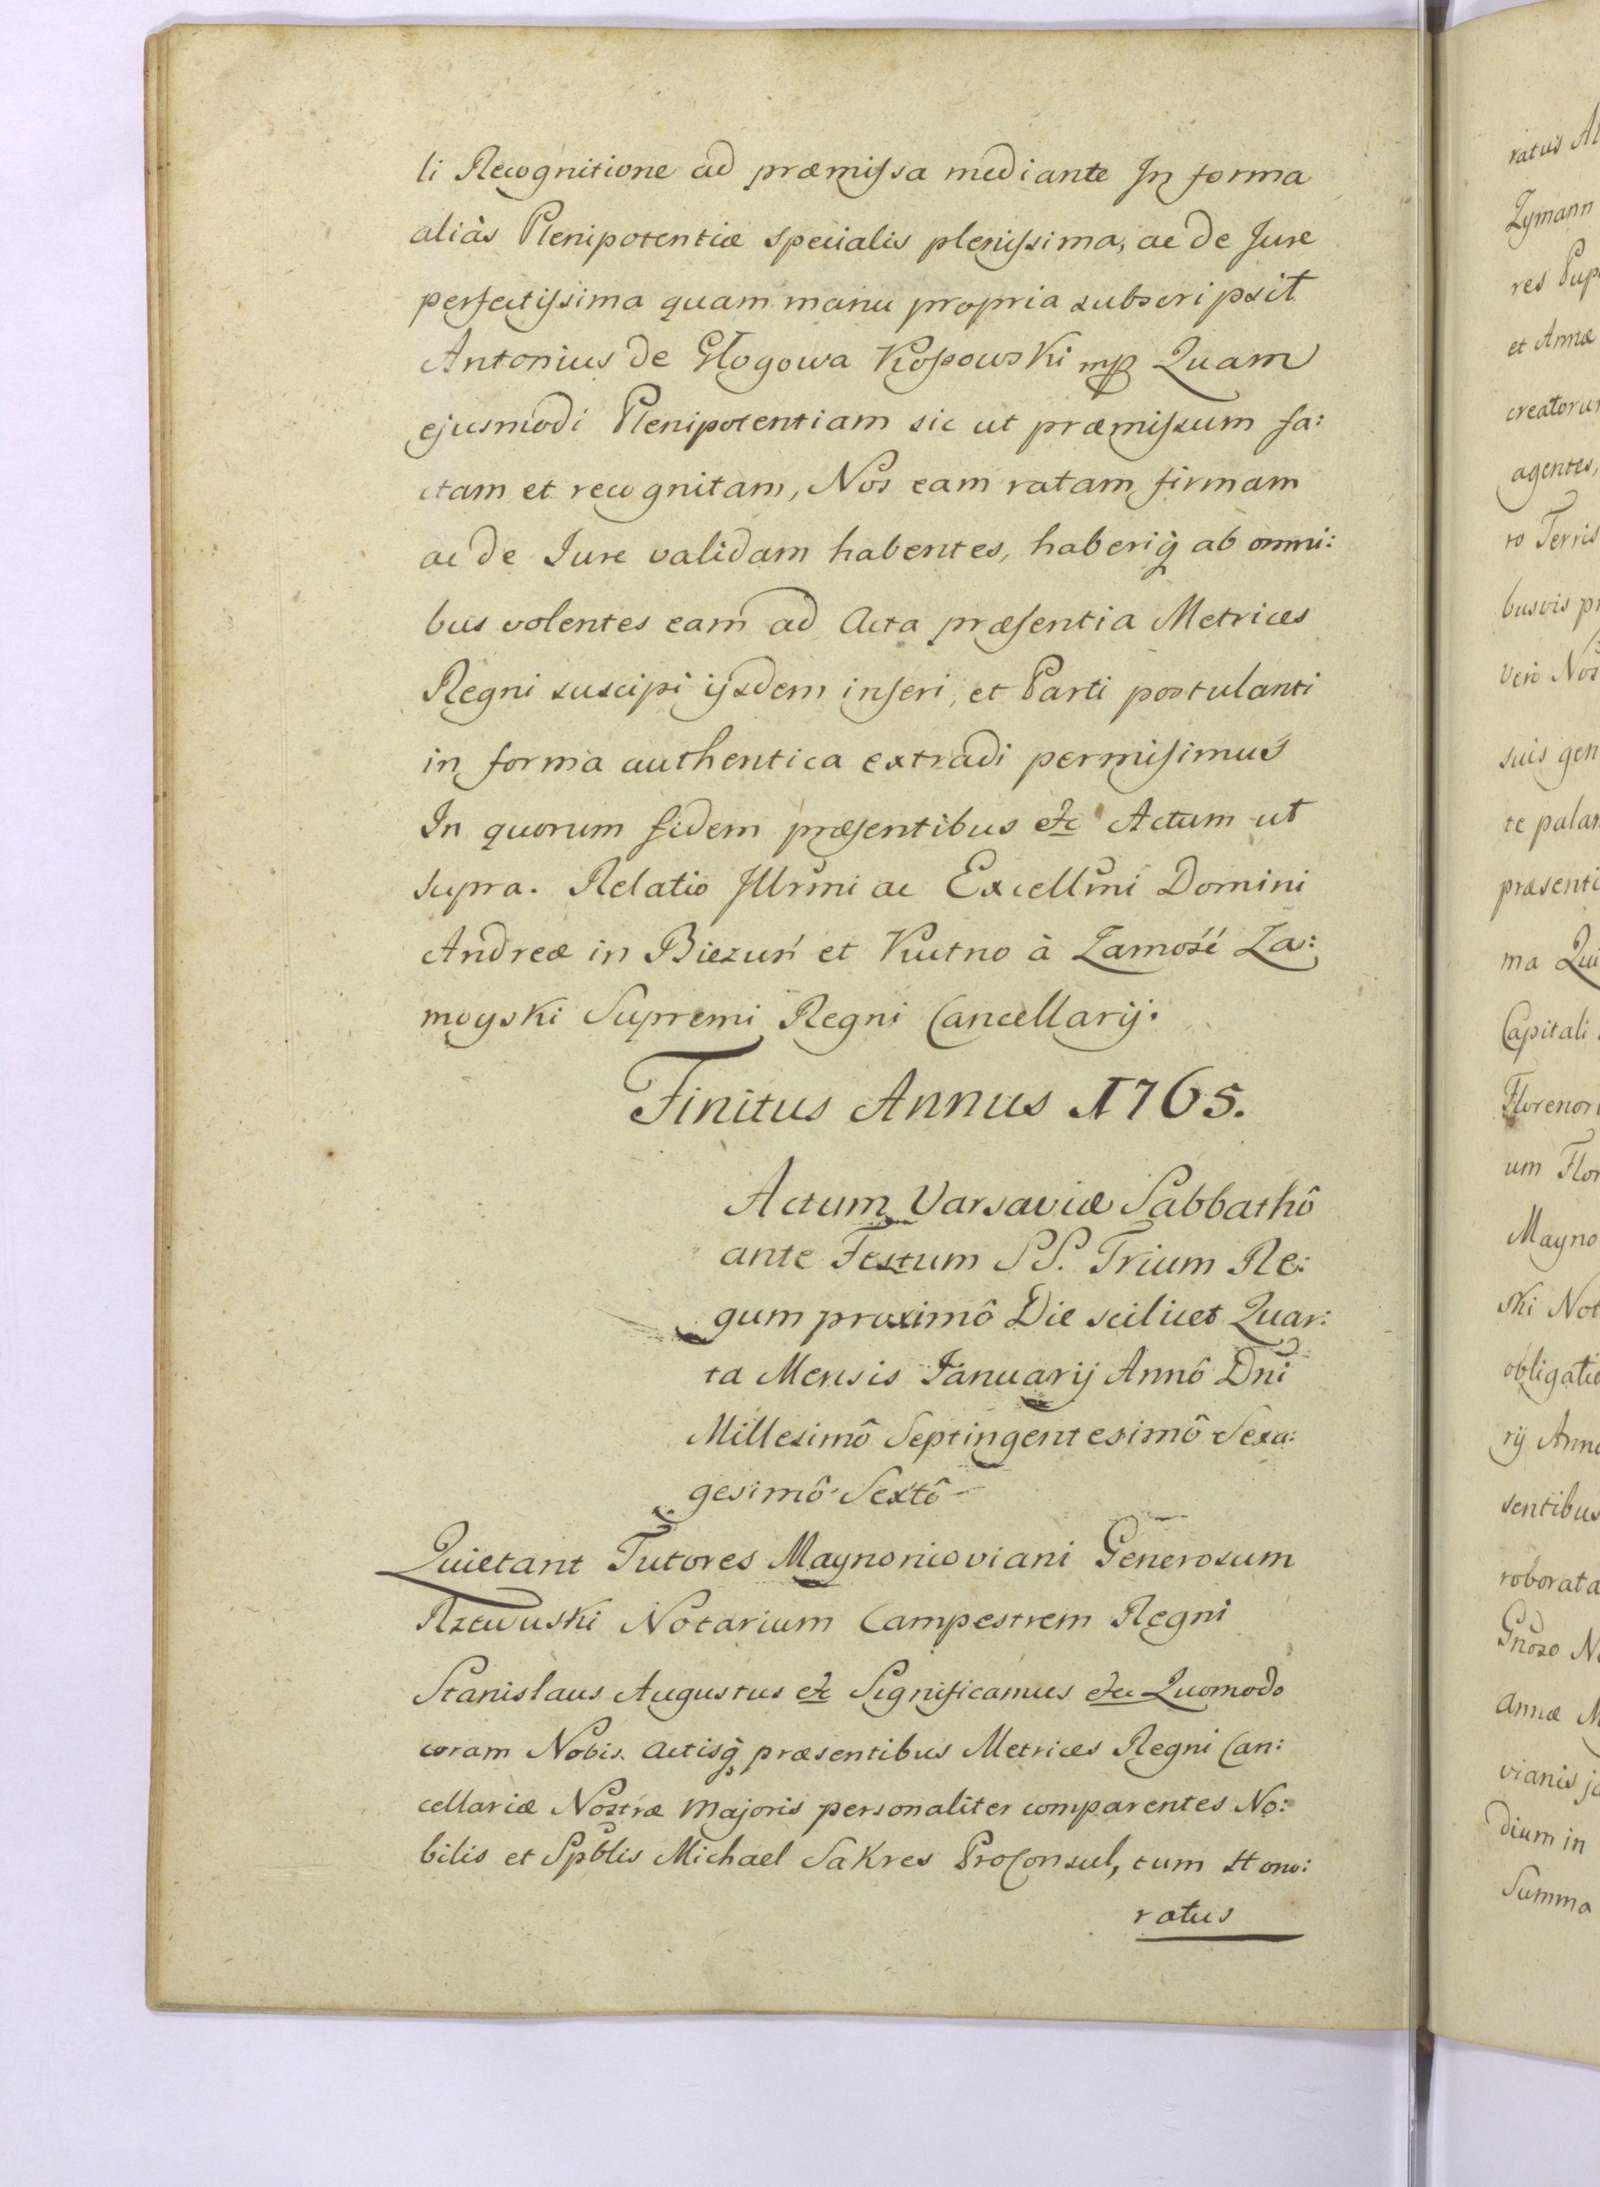 li Recognitione ad præmissa mediante In forma
aliàs Plenipotentiæ specialis plenissima, ac de Jure
perfectissima quam manu propria subscripsit
Antonius de Głogowa Kossowski mp Quam
ejusmodi Plenipotentiam sic ut præmissum fa:
ctam et recognitam, Nos eam ratam firmam
ac de Jure validam habentes, haberiq̀ ab omni:
bus volentes eam ad Acta præsentia Metrices
Regni suscipi ijsdem inseri, et Parti postulanti
in forma authentica extradi permisimus
In quorum fidem præsentibus etc Actum ut
supra. Relatio Illrmi ac Excellmi Domini
Andreæ in Biezuń et Kutno à Zamość Za:
moyski Supremi Regni Cancellarij.
Finitus Annus 1765.
Actum Varsaviæ Sabbathô
ante Festum SS. Trium Re:
gum proximô Die scilicet Quar:
ta Mensis Januarij Annô Dni
Millesimô Septingentesimô Sexa:
gesimô Sextô
Quietant Tutores Maynonicoviani Generosum
Rzewuski Notarium Campestrem Regni
Stanislaus Augustus etc Significamus etc Quomodo
coram Nobis Actisq̀ præsentibus Metrices Regni Can:
cellariæ Nostræ Majoris personaliter comparentes No:
bilis et Spblis Michael Sakres ProConsul, tum Hono:
ratus
ratus
Zymann
res
et Annæ
agentes,
ro
busvis
vero
suis
te
ma
Capitali
um
Mayno
ski
rij
sentibus
roborata
Gnoso
Annæ
vianis
dium in
Summa